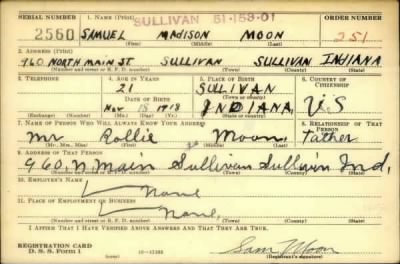 SERIAL NUMBER 1. NAME (Print) SULLIVAN 51-153-01 ORDER NUMBER
2560 SAMUEL MADISON MOON 251
(First) (Middle) (Last)
2. ADDRESS (Print)
960 NORTH MAIN ST SULLIVAN SULLIVAN INDIANA
(Number and street or R. F. D. number) (Town) (County) (State)
3. TELEPHONE 4. AGE IN YEARS 5. PLACE OF BIRTH 6. COUNTRY OF CITIZENSHIP
21 SULLIVAN
DATE OF BIRTH (Town or county)
Nov 18 1918 INDIANA, U.S
(Exchange) (Number) (Mo.) (Day) (Yr.) (State or country)
7. NAME OF PERSON WHO WILL ALWAYS KNOW YOUR ADDRESS 8. RELATIONSHIP OF THAT PERSON
Mr Rollie Moon, Father
(Mr., Mrs., Miss) (First) (Middle) (Last)
9. ADDRESS OF THAT PERSON
960, N Main Sullivan Sullivan Ind,
(Number and street or R. F. D. number) (Town) (County) (State)
10. EMPLOYER'S NAME
None
11. PLACE OF EMPLOYMENT OR BUSINESS
None,
(Number and street or R. F. D. number) (Town) (County) (State)
I AFFIRM THAT I HAVE VERIFIED ABOVE ANSWERS AND THAT THEY ARE TRUE.
REGISTRATION CARD
D. S. S. Form 1 Sam Moon
(Registrant's signature)